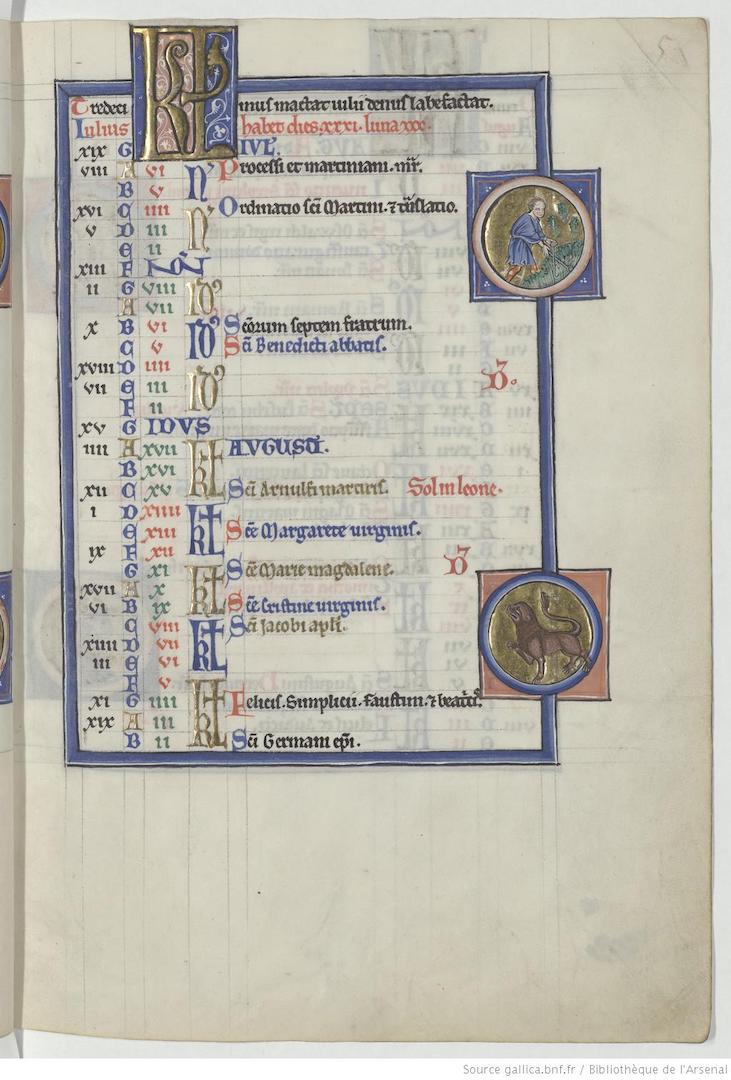 Tredeci KL mus mactat iulii denus labefactat.
Iulius habet dies xxxi. luna xxx.
xix G IVL.
viii A vi N' Processi et martiniani. mr̄.
B v
xvi C iiii N' Ordinatio sc̄i Martini. ⁊ trͣslatio.
v D iii
E ii
xiii F NON'
ii G viii ID'
A vii
x B vi ID' Sc̄orum septem fratrum.
C v Sc̄i Benedicti abbatis.
xviii D iiii
D'.
vii E iii ID'
F ii
xv G IDVS
iiii A xvii kł AVGUSTI.
B xvi
xii C xv Sc̄i Arnulfi martiris. Sol in leone.
i D xiiii
E xiii kł Sc̄e Margarete uirginis.
ix F xii
D'
G xi kł Sc̄e Marie magdalene.
xvii A x
vi B ix Sc̄e Cristine uirginis.
C viii kł Sc̄i Jacobi apl̄i.
xiiii D vii
iii E vi
F v kł
xi G iiii Felicis. Simplicii. Faustini. ⁊ beatͥcͥs.
xix A iii
B ii Sc̄i Germani ep̄i.
Source gallica.bnf.fr / Bibliothèque de l'Arsenal